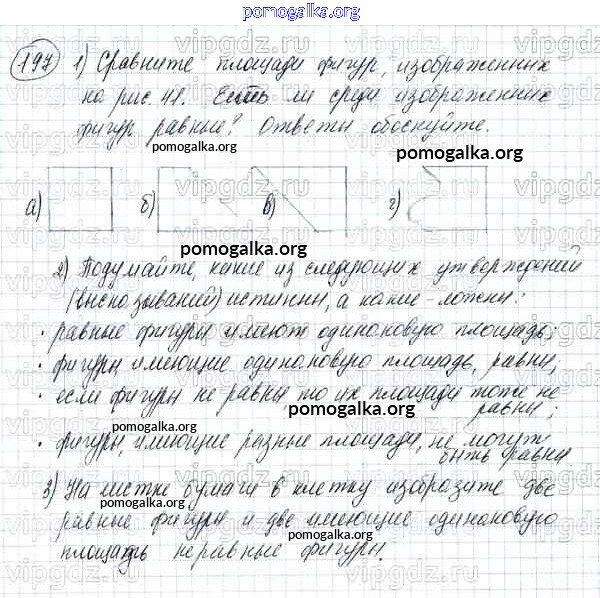 pomogalka.org
197 1) Сравните площади фигур, изображенных
на рис. 41. Есть ли среди изображенных
фигур равные? Ответы обоснуйте.
pomogalka.org
pomogalka.org
а) б) в) г)
pomogalka.org
2) Подумайте, какие из следующих утверждений
(высказываний) истинны, а какие - ложны:
· равные фигуры имеют одинаковую площадь;
· фигуры имеющие одинаковую площадь, равны;
· если фигуры не равны то их площади тоже не
pomogalka.org
равны;
· фигуры, имеющие разные площади, не могут
быть равны.
pomogalka.org
3) На листке бумаги в клетку изобразите две
pomogalka.org
равные фигуры и две имеющие одинаковую
pomogalka.org
площадь неравные фигуры.